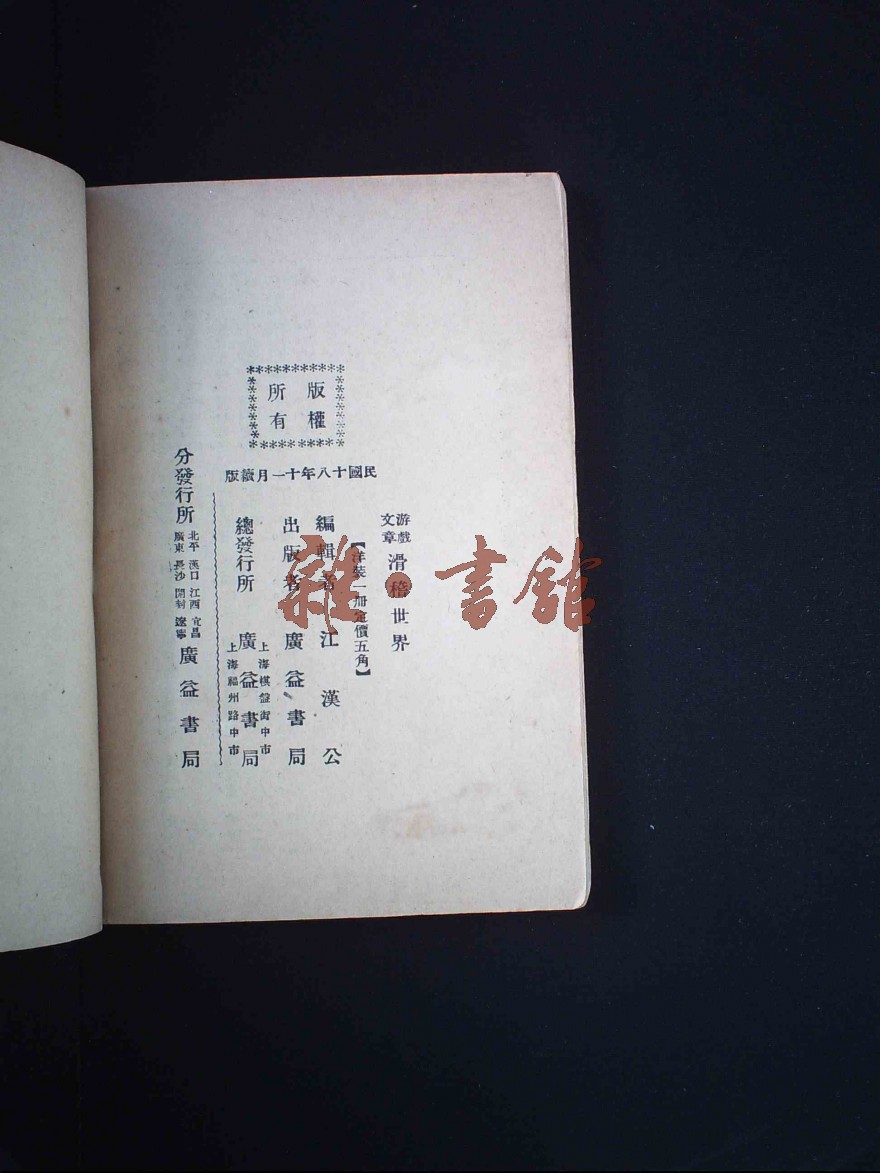 版權
所有
民國十八年十一月續版
游戲文章 滑稽世界
【洋裝一册定價五角】
編輯者 江漢公
出版者 廣益書局
上海棋盤街中市
總發行所 廣益書局
上海福州路中市
分發行所 北平 漢口 江西 宜昌 廣東 長沙 開封 遼寧 廣益書局
雜·書館